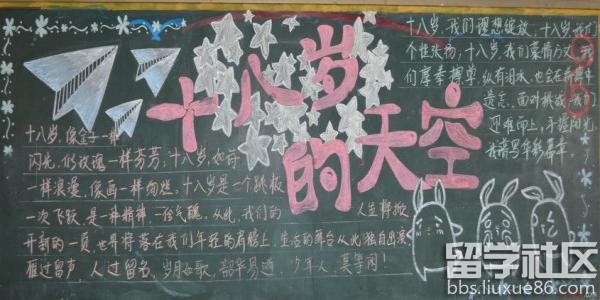 十八岁的天空
十八岁,我们理想绽放,十八岁,我们
个性张扬,十八岁,我们豪情万丈,我
们厚重搏单,纵有泪水,也会在
遗忘,面对挑战,我们
迎难而上,手握阳光
我嘱写华彩篇章
十八岁,像金子一样
闪光,似玫瑰一样芬芳,十八岁,如诗
一样浪漫,像画一样绚烂,十八岁是一个跳板
一次飞跃,是一种精神,一份气魄,从此,我们的 人生将掀
开新的一页,也将落在我们年轻的肩膀上,生活的舞台从此独自出演
雁过留声,人过留名,岁月如歌,韶华易逝,少年人,莫等闲!
留学社区
bbs.liuxue86.com